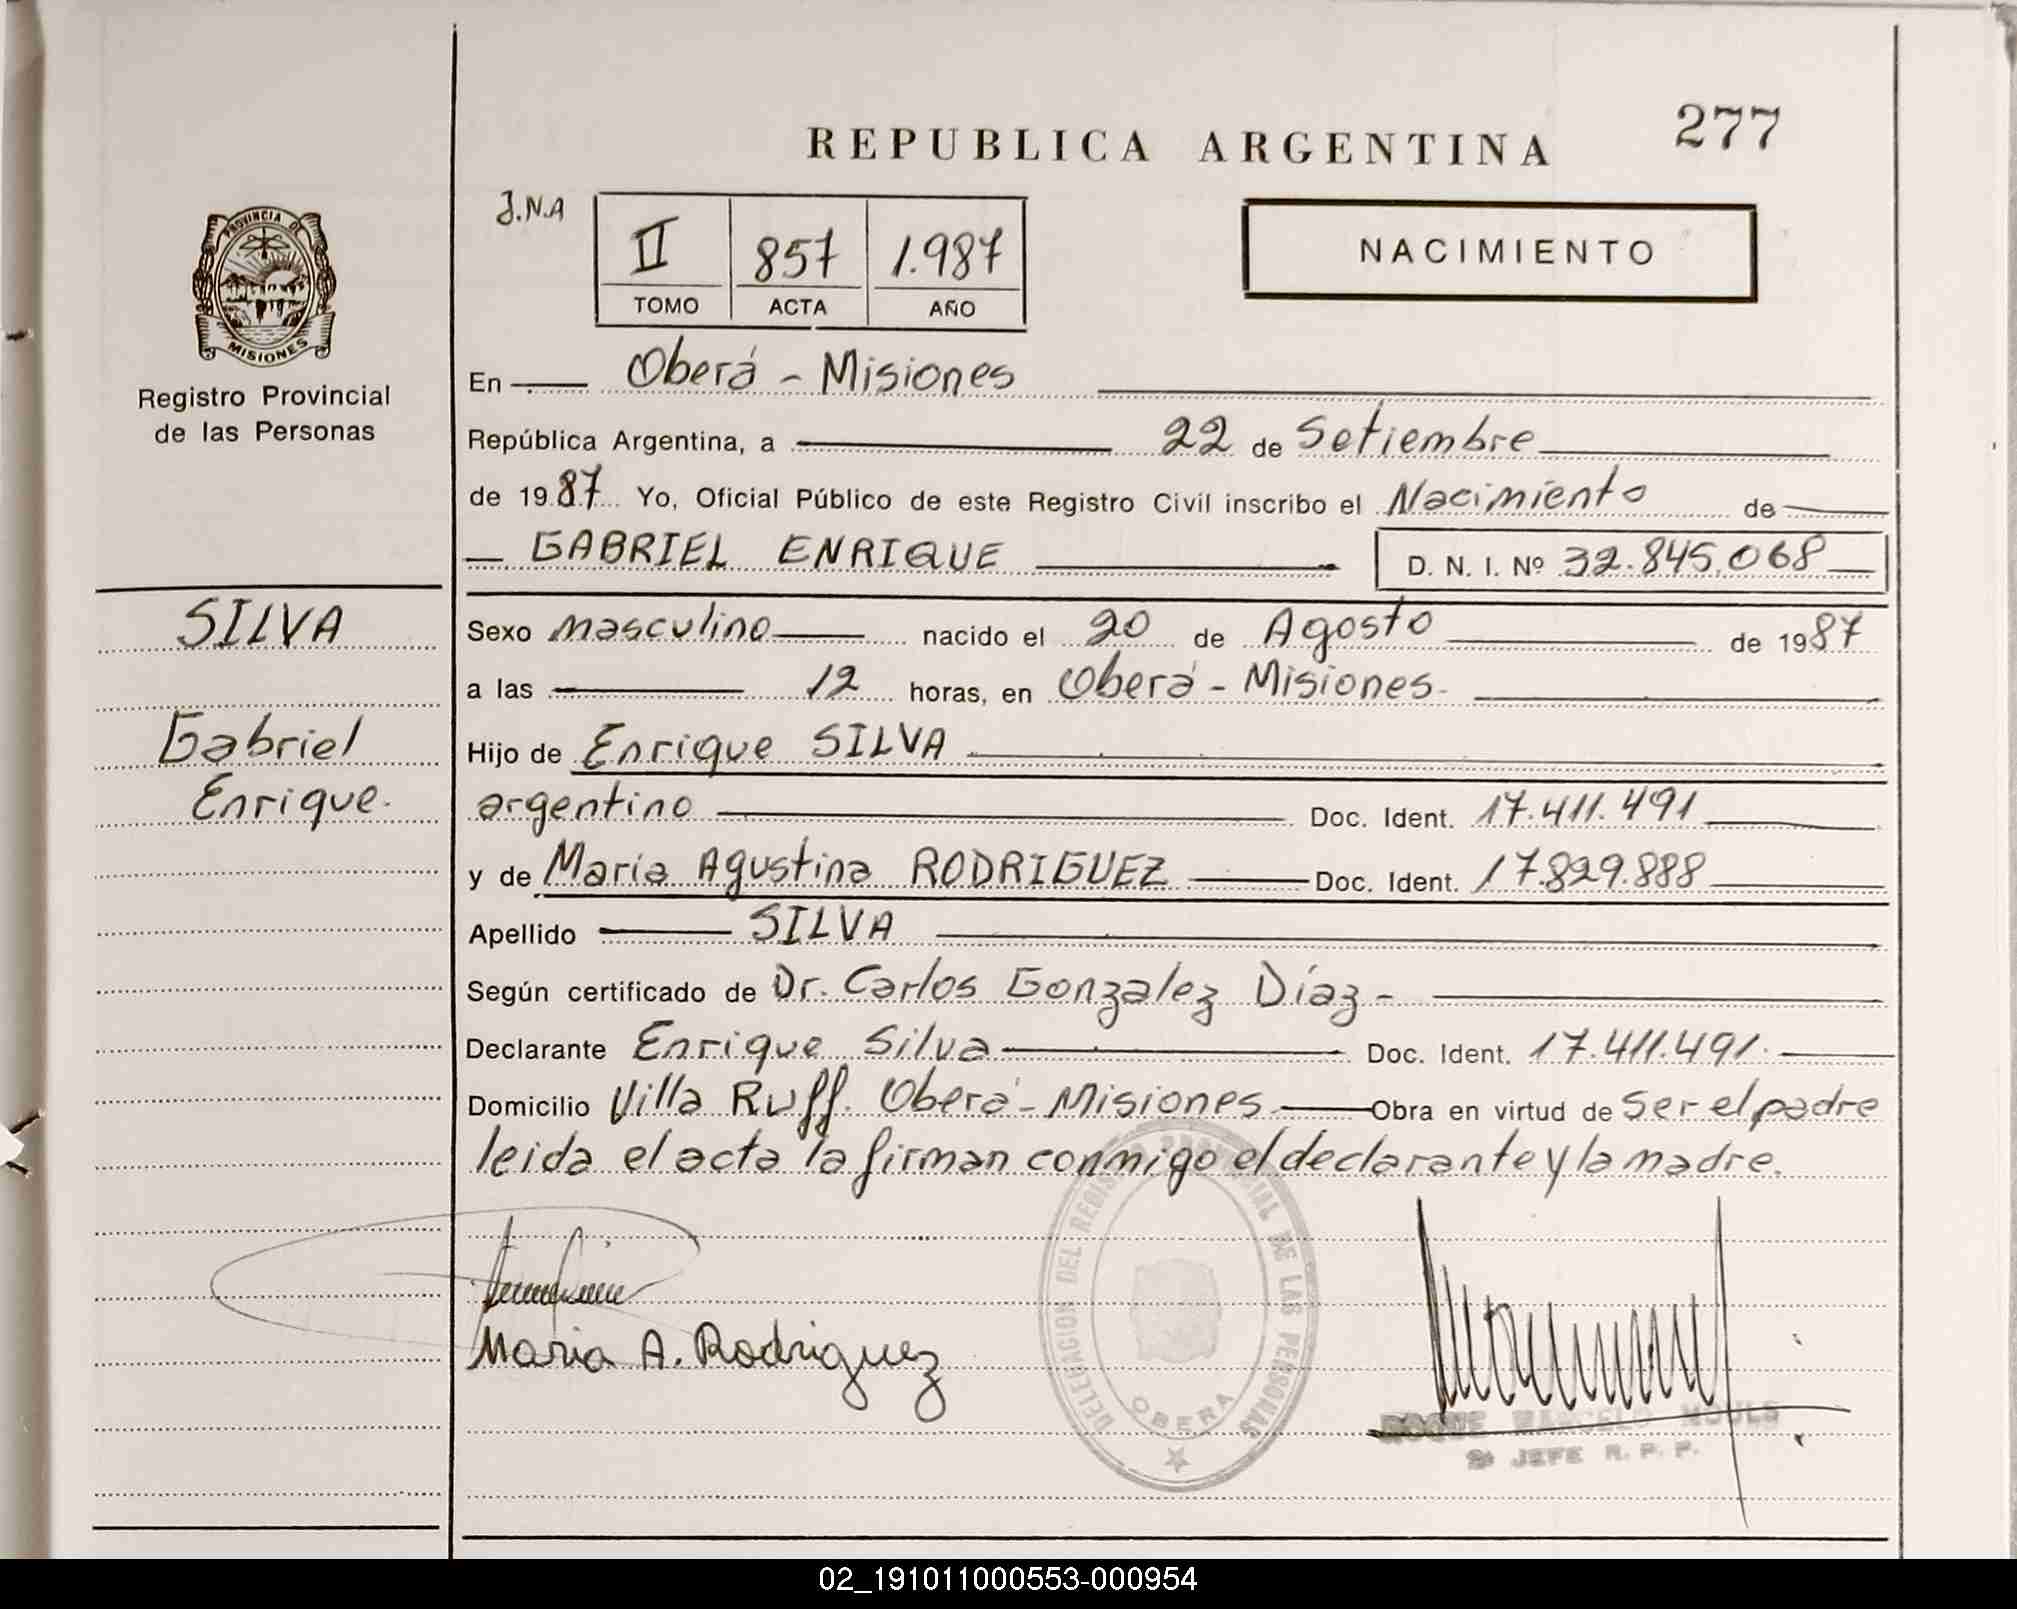 277
REPUBLICA ARGENTINA
J.N.A
II 857 1.987
TOMO ACTA AÑO
NACIMIENTO
PROVINCIA DE
MISIONES
Registro Provincial
de las Personas
SILVA
Gabriel
Enrique.
En Oberá - Misiones
República Argentina, a 22 de Setiembre
de 1987 Yo, Oficial Público de este Registro Civil inscribo el Nacimiento de
GABRIEL ENRIQUE D. N. I. Nº 32.845.068
Sexo masculino nacido el 20 de Agosto de 1987
a las 12 horas, en Oberá - Misiones.
Hijo de Enrique SILVA
argentino Doc. Ident. 17.411.491
y de María Agustina RODRIGUEZ Doc. Ident. 17.829.888
Apellido SILVA
Según certificado de Dr. Carlos Gonzalez Díaz -
Declarante Enrique Silva Doc. Ident. 17.411.491.
Domicilio Villa Ruff. Oberá - Misiones Obra en virtud de ser el padre
leida el acta la firman conmigo el declarante y la madre.
Maria A. Rodriguez
DELEGACION DEL REGISTRO PROVINCIAL DE LAS PERSONAS
OBERA
ROQUE MARCELO MOULS
JEFE R. P. P.
02_191011000553-000954